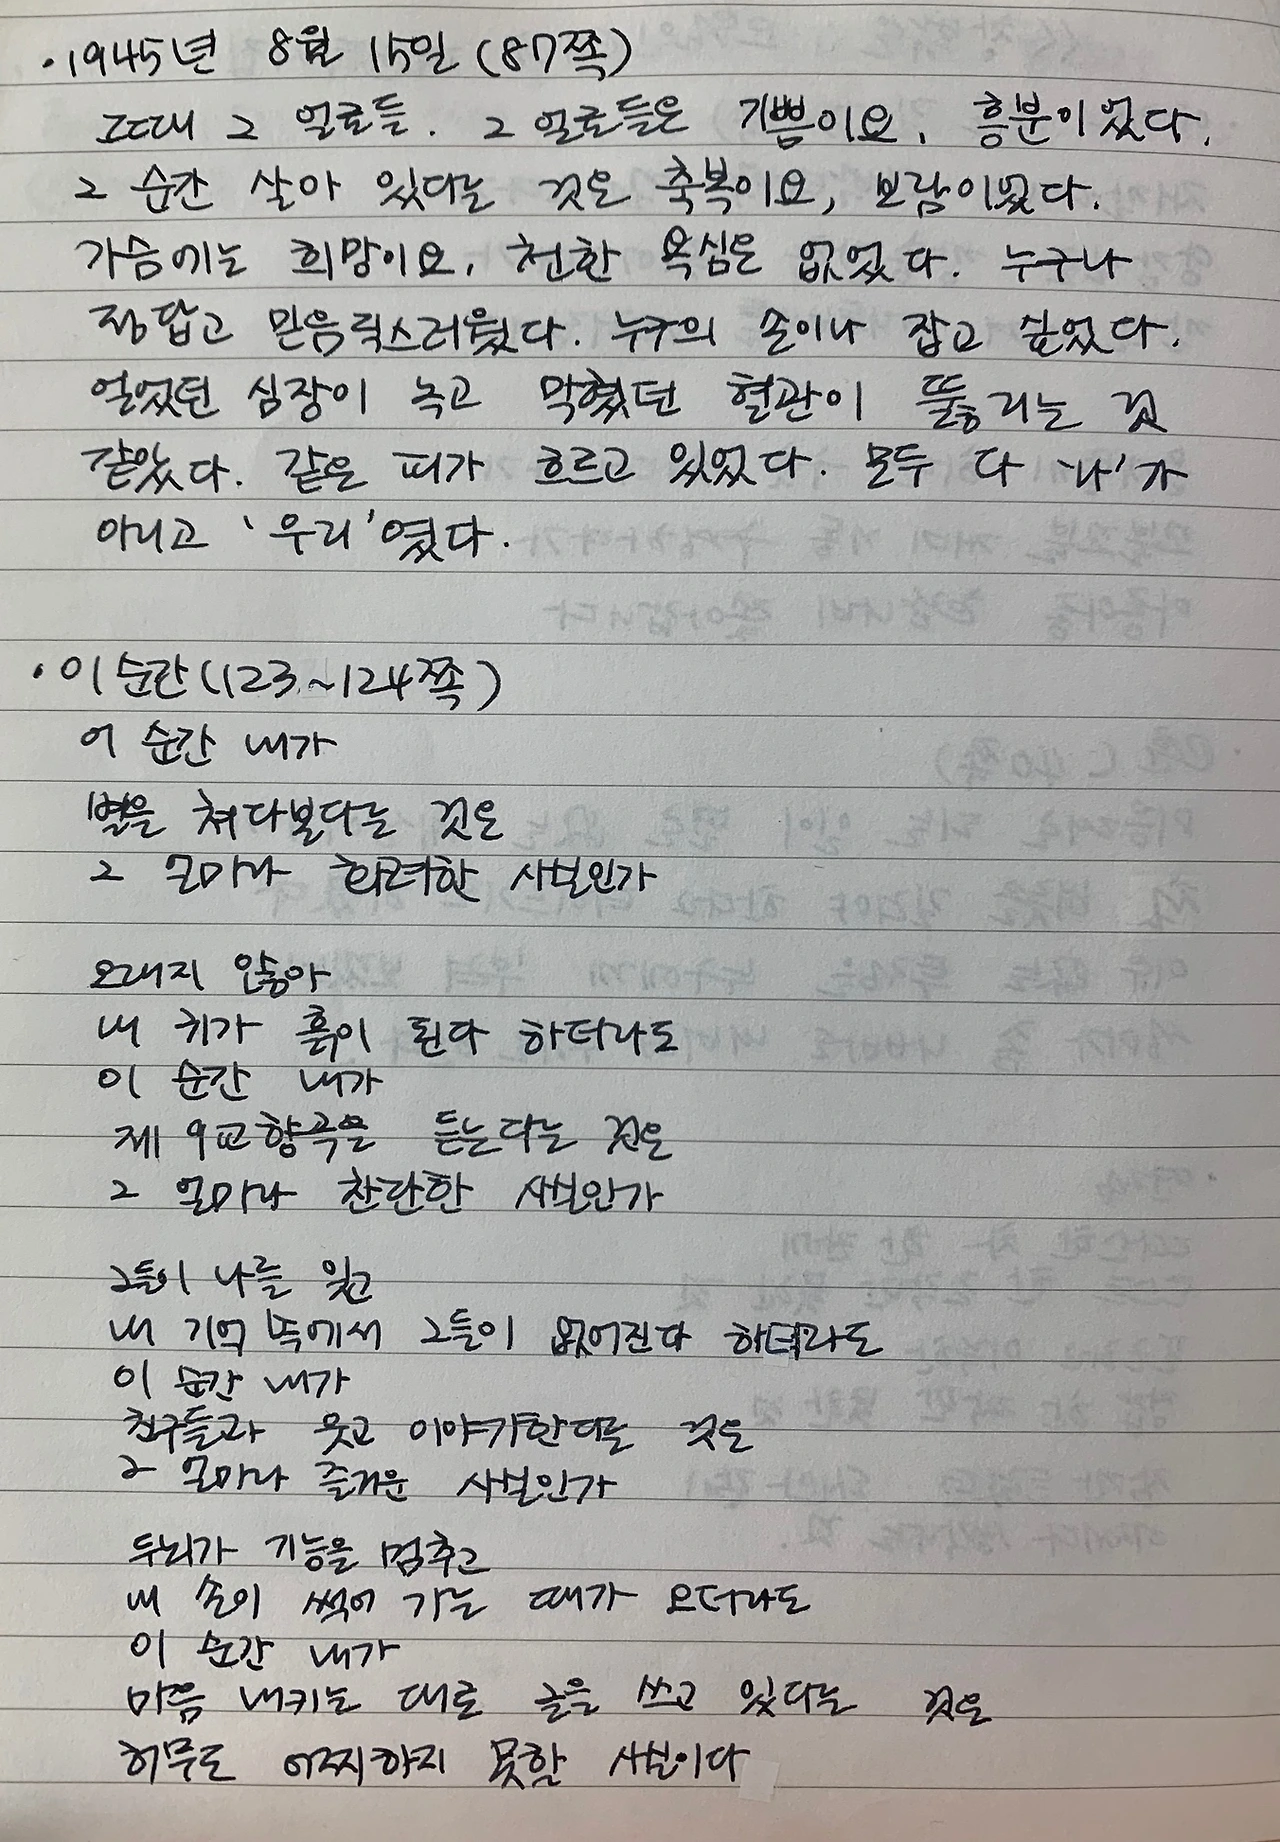 · 1945년 8월 15일 (87쪽)
그때 그 얼굴들. 그 얼굴들은 기쁨이요, 흥분이었다.
그 순간 살아 있다는 것은 축복이요, 보람이었다.
가슴에는 희망이요, 천한 욕심은 없었다. 누구나
정답고 믿음직스러웠다. 누구의 손이나 잡고 싶었다.
얼었던 심장이 녹고 막혔던 혈관이 뚫리는 것
같았다. 같은 피가 흐르고 있었다. 모두 다 '나'가
아니고 '우리'였다.
· 이 순간 (123~124쪽)
이 순간 내가
별을 쳐다본다는 것은
그 얼마나 화려한 사실인가
오래지 않아
내 귀가 흙이 된다 하더라도
이 순간 내가
제 9교향곡을 듣는다는 것은
그 얼마나 찬란한 사실인가
그들이 나를 잊고
내 기억 속에서 그들이 없어진다 하더라도
이 순간 내가
친구들과 웃고 이야기한다는 것은
그 얼마나 즐거운 사실인가
두뇌가 기능을 멈추고
내 손이 썩어 가는 때가 오더라도
이 순간 내가
마음 내키는 대로 글을 쓰고 있다는 것은
허무도 어찌하지 못할 사실이다